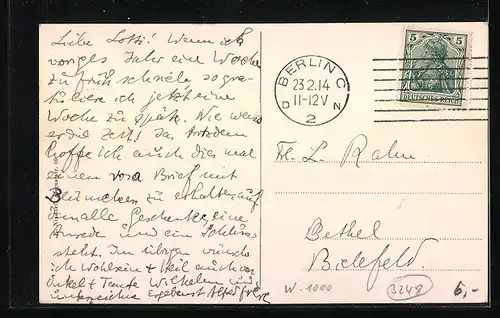 Liebe Lotti! Wenn ich
voriges Jahr eine Woche
zu früh schrieb so gra-
tuliere ich jetzt eine
Woche zu spät. Wie
die Zeit! Da trotzdem
hoffe ich auch dies mal
einen rosa Brief mit
Blümchen zu erhalten, auf
dem alle Geschenke, eine
Anrede und ein Schluss
steht. Im übrigen wünsche
ich Wohlsein + Heil auch von
Onkel + Tante Wilhelm und
unterzeichne Ergebenst Alfred
BERLIN C
23.2.14
11-12V
D N
2
5 5
DEUTSCHES REICH
Frl. L. Rahn
Bethel
Bielefeld.
W-1000
3248
6,-